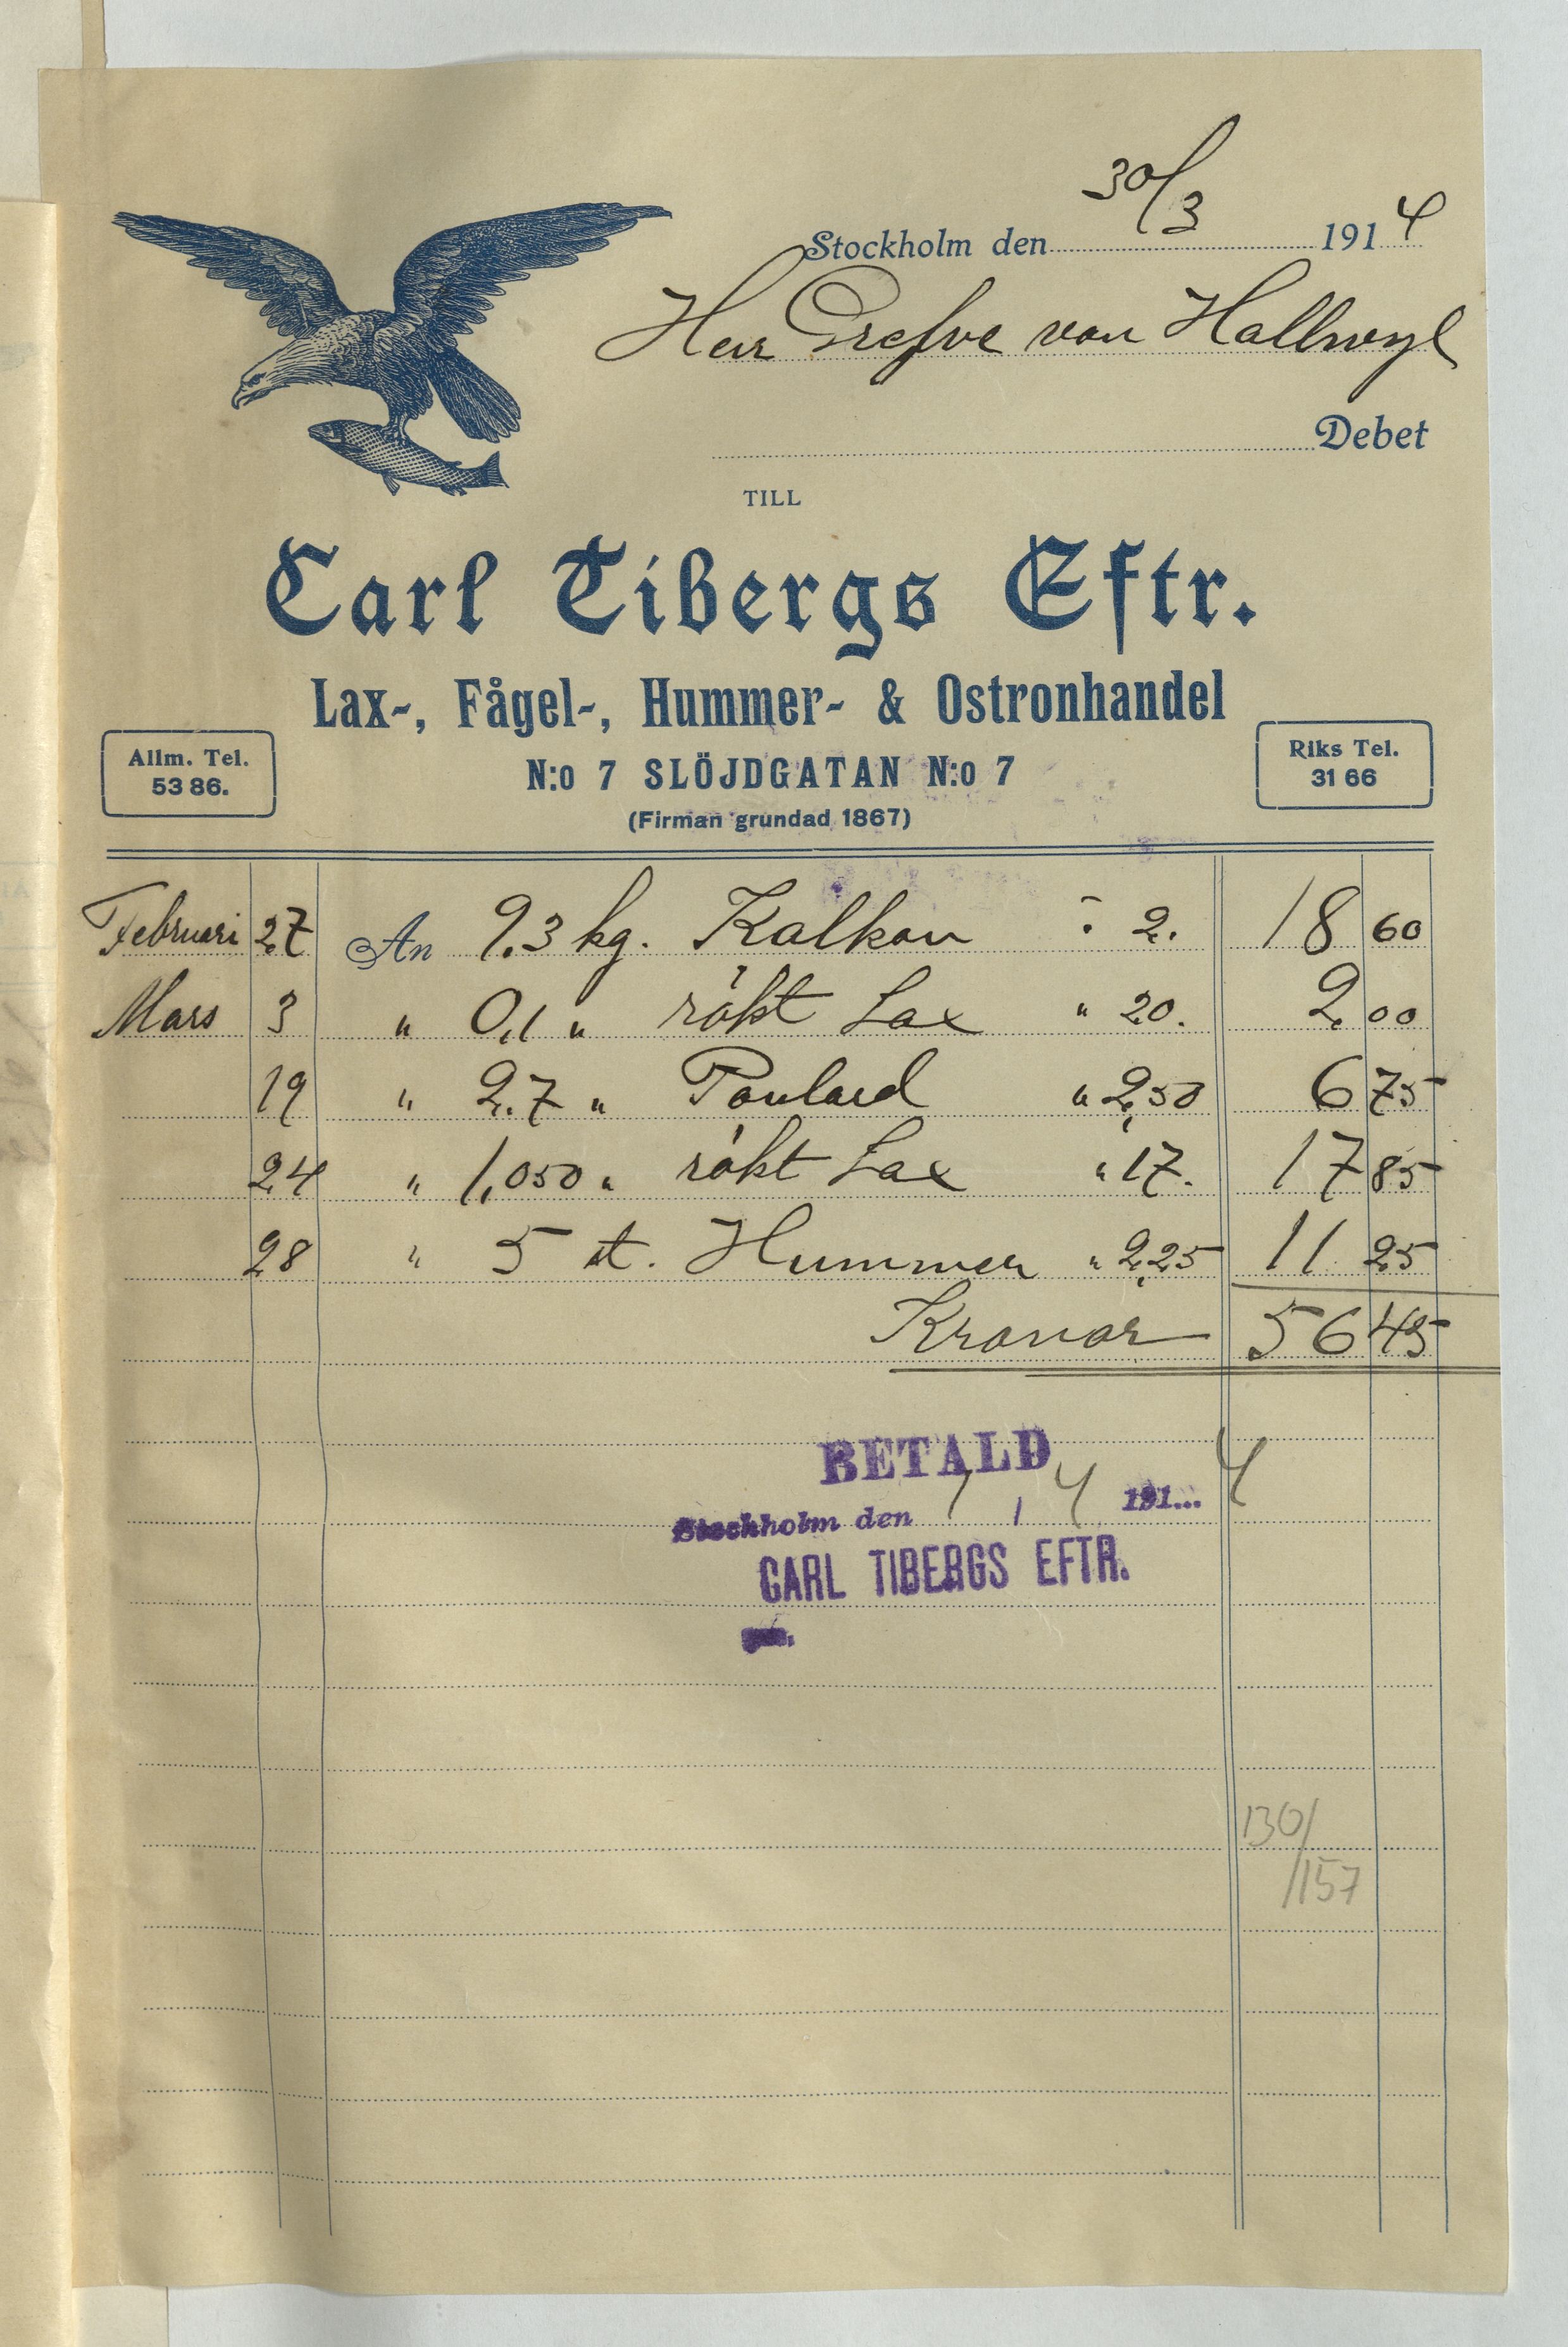 Stockholm den 30/3 1914
Herr Grefve von Hallwyl
Debet
TILL
Carl Tibergs Eftr.
Lax-, Fågel-, Hummer- & Ostronhandel
Allm. Tel.
53 86.
N:o 7 SLÖJDGATAN N:o 7
Riks Tel.
31 66
(Firman grundad 1867)
Februari 27 An 9.3 kg. Kalkon à 2. 18 60
Mars 3 " 0,1 " rökt Lax " 20. 2,00
19 " 2.7 " Poulard " 2,50 6 75
24 " 1,050 " rökt Lax " 17. 17 85
28 " 5 st. Hummer " 2,25 11 25
Kronor 56 45
BETALD
Stockholm den 1 / 4 191...4
CARL TIBERGS EFTR.
130/
/157